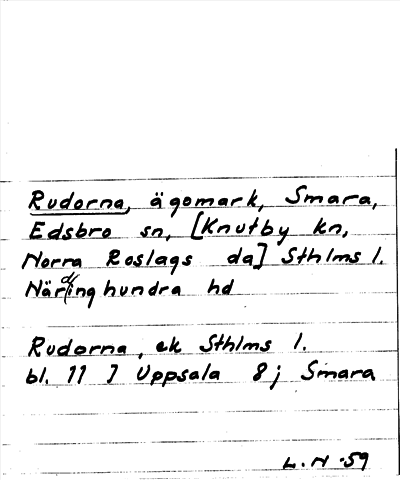 Rudorna, ägomark, Smara,
Edsbro sn, [Knutby kn,
Norra Roslags da] Sthlms l.
Närdinghundra hd
Rudorna, ek Sthlms l.
bl. 11 J Uppsala 8 j Smara
L. N -59